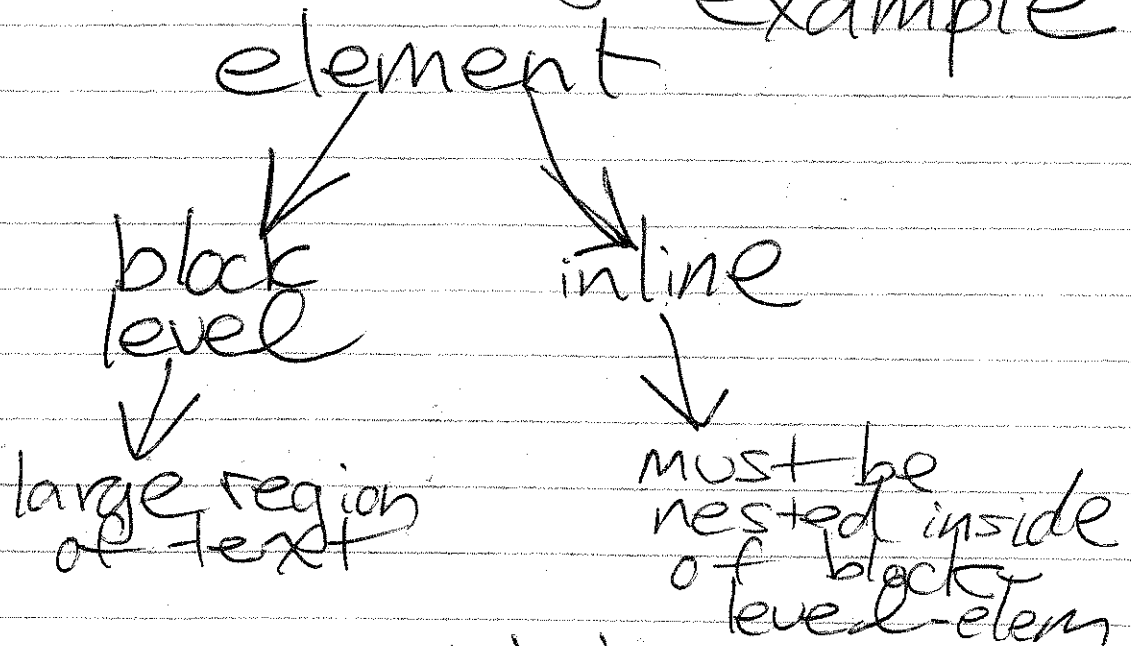 example
element
block
level
inline
large region
of text
must be
nested inside
of block
level-elem